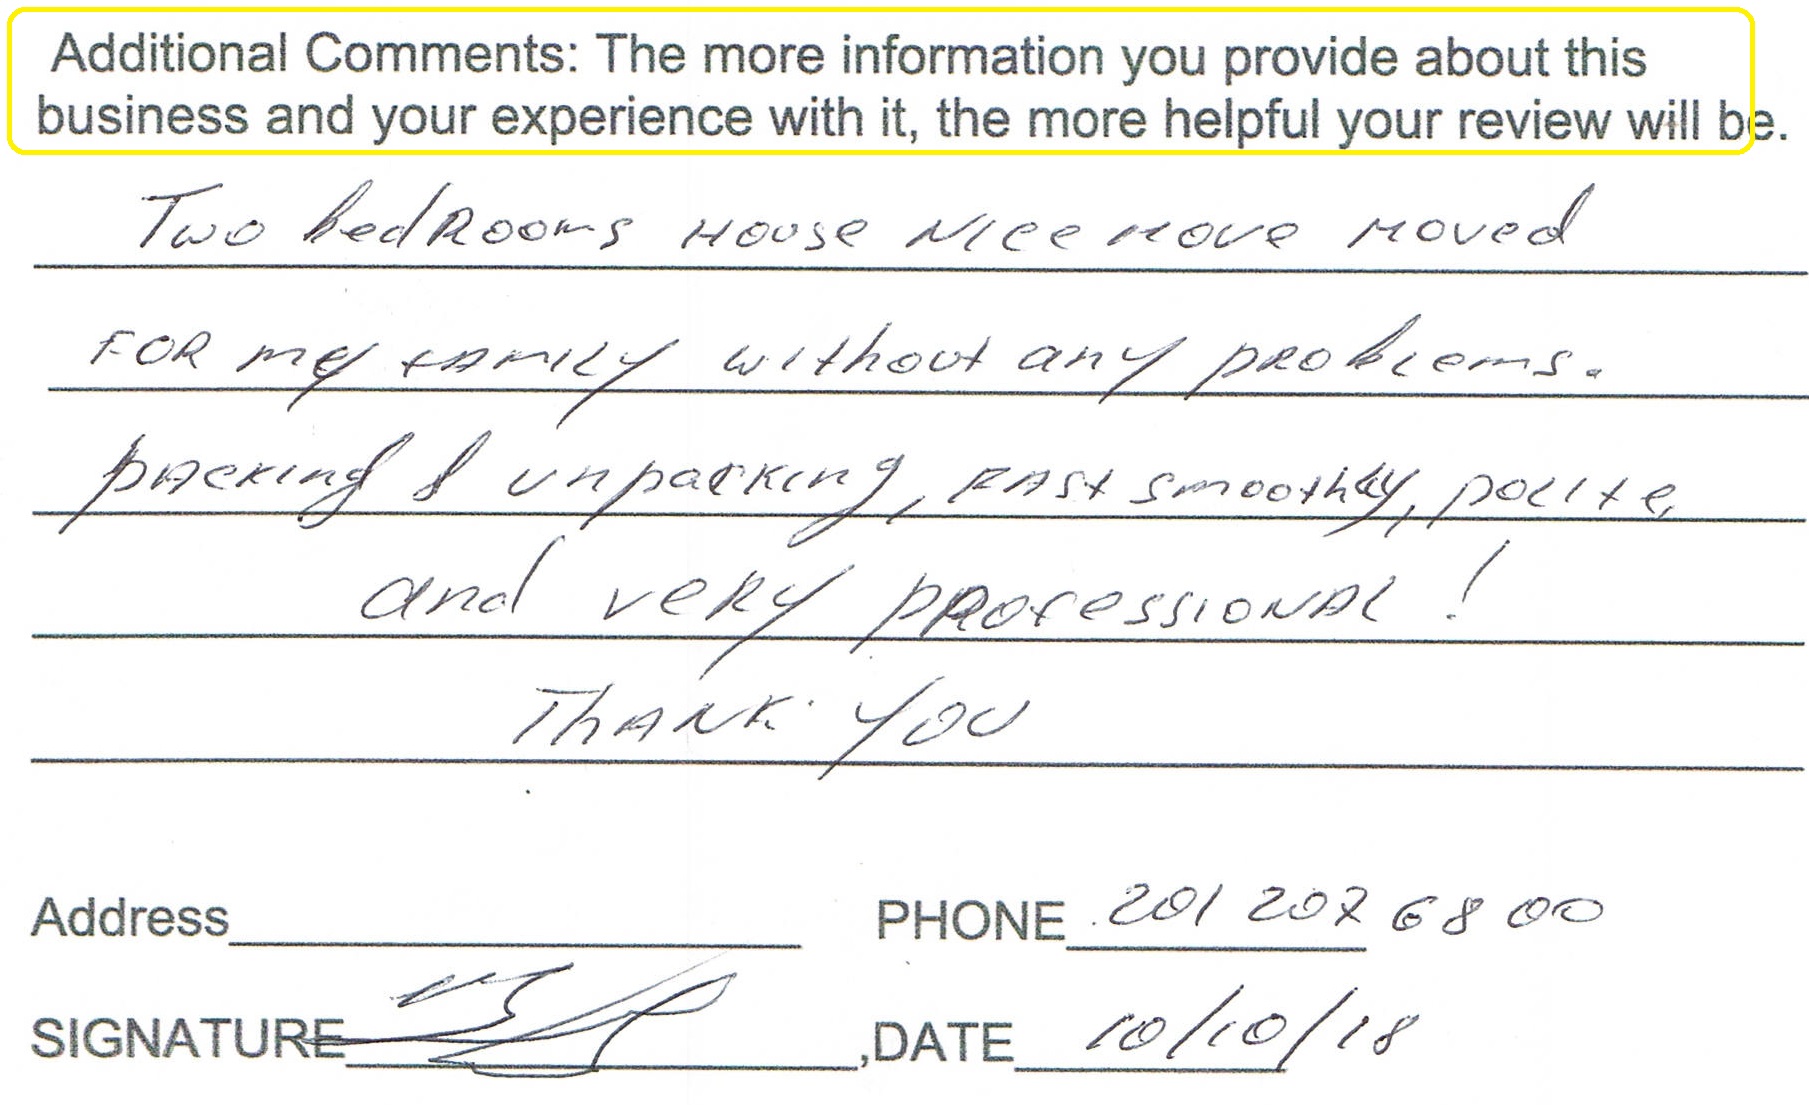 Additional Comments: The more information you provide about this
business and your experience with it, the more helpful your review will be.
Two bedRooms House Nice move moved
FOR my FAMILY without any pRoblems.
pAcking & unpacking, FAst smoothly, polite,
and veRy pRofessIONAL!
ThANK YOU
Address PHONE 201 207 6800
SIGNATURE ,DATE 10/10/18